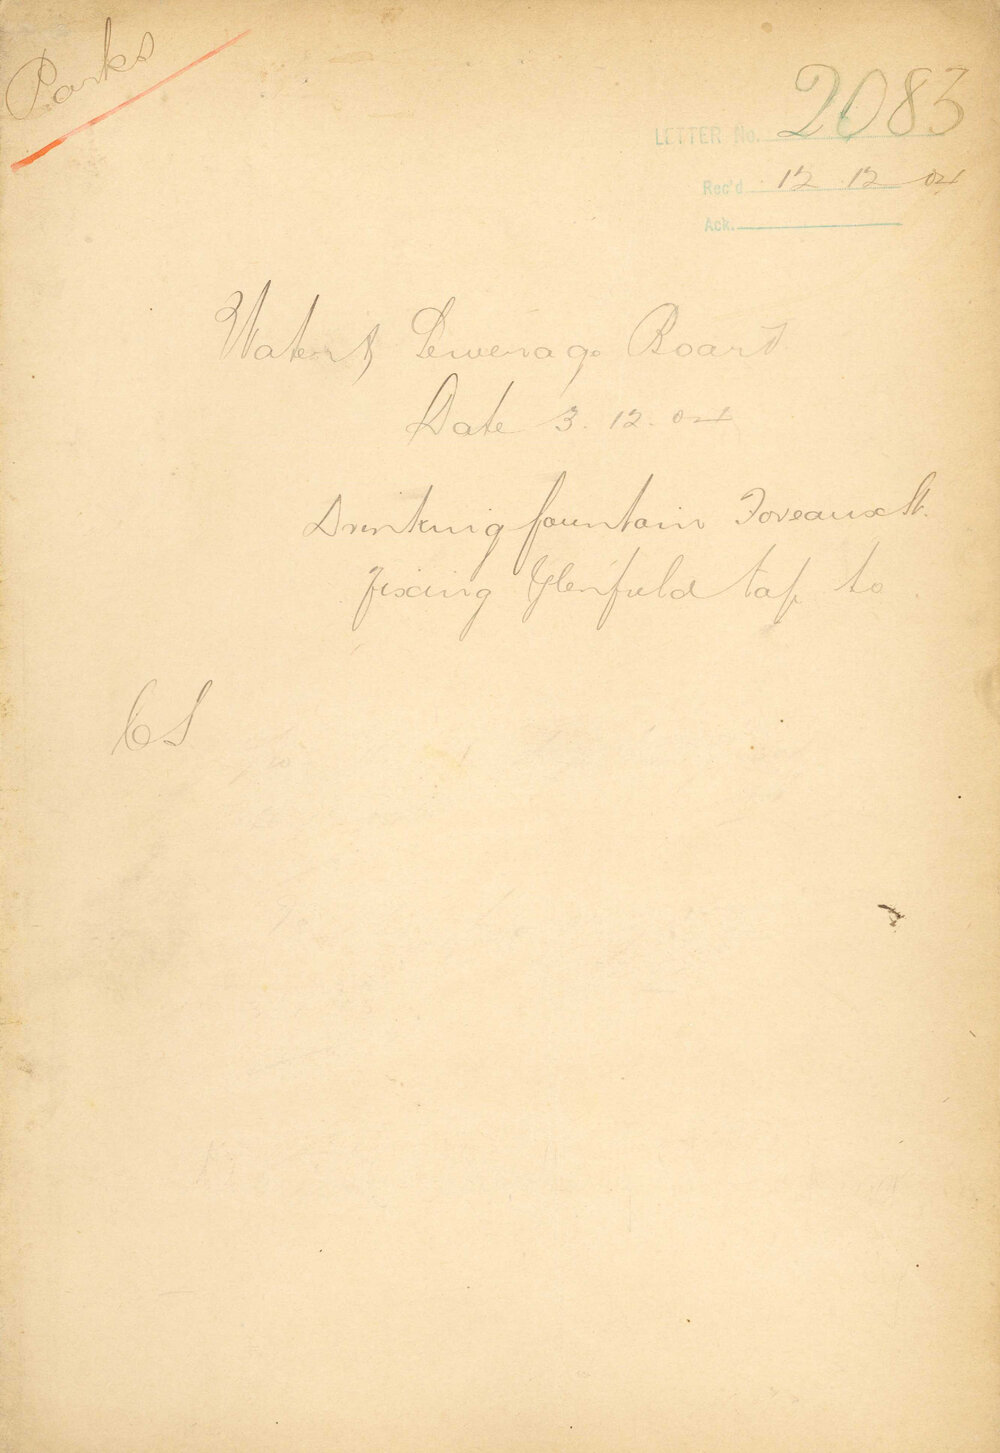 Parks
LETTER No. 2083
Rec'd 12 12 04
Ack.
Water & Sewerage Board
Date 3.12.04
Drinking fountain Foveaux St.
Fixing Glenfield tap to
CS